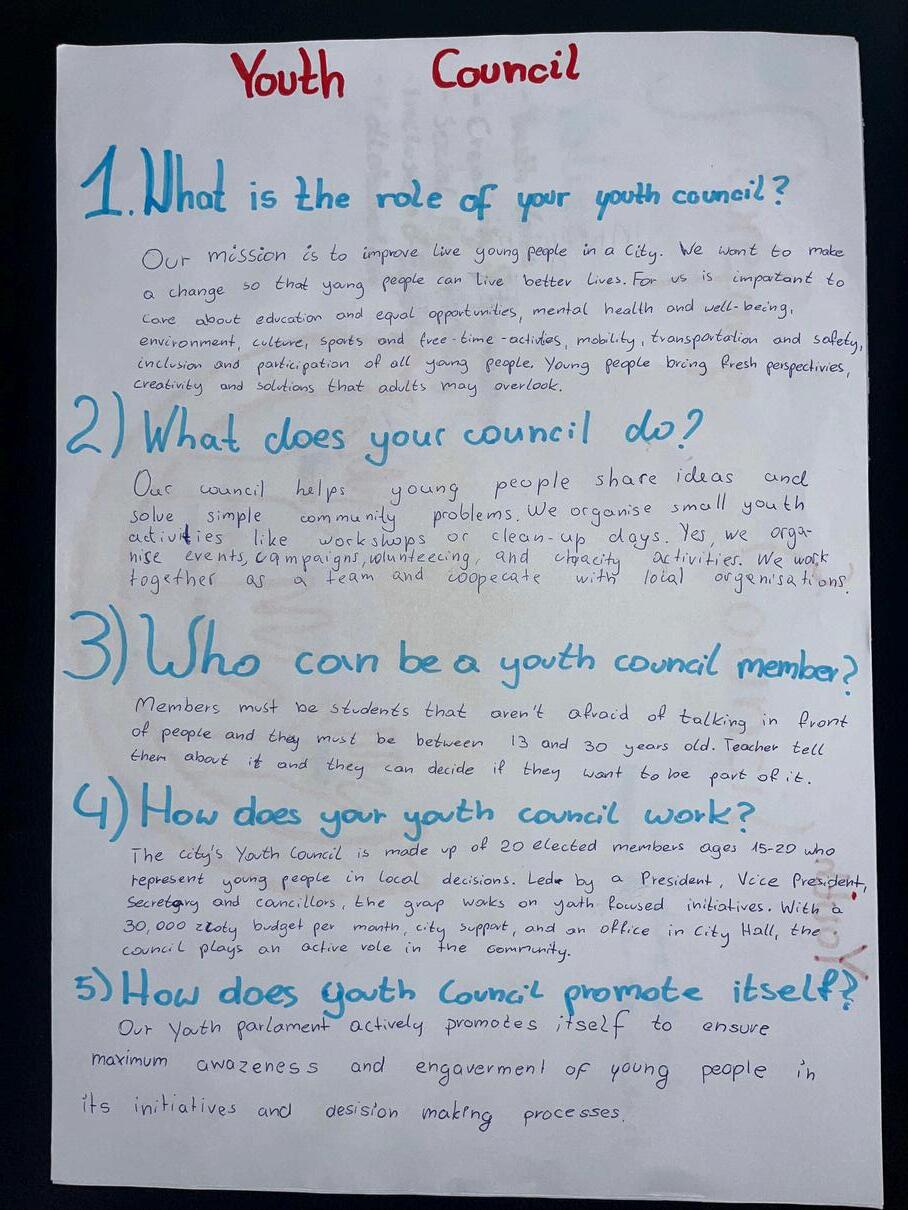 Youth Council
1. What is the role of your youth council?
Our mission is to improve live young people in a City. We want to make
a change so that young people can live better lives. For us is important to
care about education and equal opportunities, mental health and well-being,
environment, culture, sports and free-time-activities, mobility, transportation and safety,
inclusion and participation of all young people. Young people bring fresh perspectivies,
creativity and solutions that adults may overlook.
2) What does your council do?
Our council helps young people share ideas and
solve simple community problems. We organise small youth
activities like workshops or clean-up days. Yes, we orga-
nise events, campaigns, volunteering, and chacity activities. We work
together as a team and coopecate with local organisations.
3) Who can be a youth council member?
Members must be students that aren't afraid of talking in front
of people and they must be between 13 and 30 years old. Teacher tell
them about it and they can decide if they want to be part of it.
4) How does your youth council work?
The city's Youth Council is made up of 20 elected members ages 15-20 who
represent young people in local decisions. Led by a President, Vice President,
Secretary and councillors, the group works on youth focused initiatives. With a
30,000 zloty budget per month, city support, and an office in City Hall, the
council plays an active role in the community.
5) How does youth Council promote itself?
Our Youth parlament actively promotes itself to ensure
maximum awazeness and engaverment of young people in
its initiatives and desision making processes.